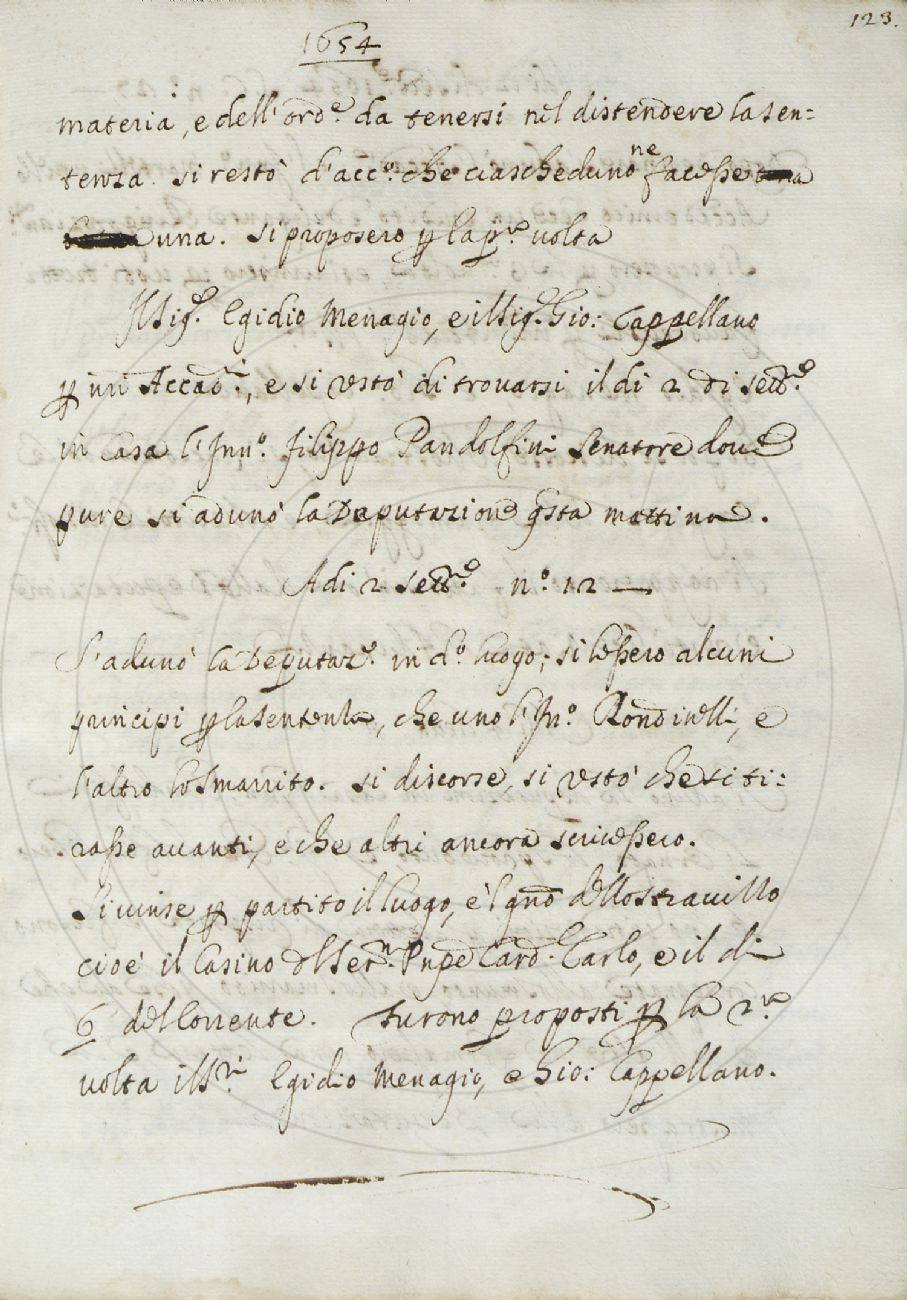 123.
1654
materia, e dell'ord.e da tenersi nel distendere la sen=
tenza. si restò d'acc.o che ciascheduno ne facesse
una. Si proposero p la p.a volta
Il Sig.r Egidio Menagio, e il Sig.r Gio: Cappellano
p nri Accad.i, e si restò di trovarsi il di 2 di Sett.e
in Casa l'Inn.o Filippo Pandolfini Senatore dove
pure si adunò la Deputazione qsta mattina.
Adi 2 Sett.e n.o 12 —
S'adunò la Deputaz.e in d.o luogo; si lessero alcuni
principi p la sentenza, che uno l'Inn.o Rondinelli, e
l'altro lo Smarrito. si discorse, si restò che si ti:
rasse avanti, e che altri ancora scrivessero.
Si vinse p partito il luogo, e'l gno dello stravizzo
cioè il Casino dl Ser.mo Pnpe Card.l Carlo, e il di
6 del Corrente. Furono proposti p la 2.a
volta i SS.ri Egidio Menagio, e Gio: Cappellano.